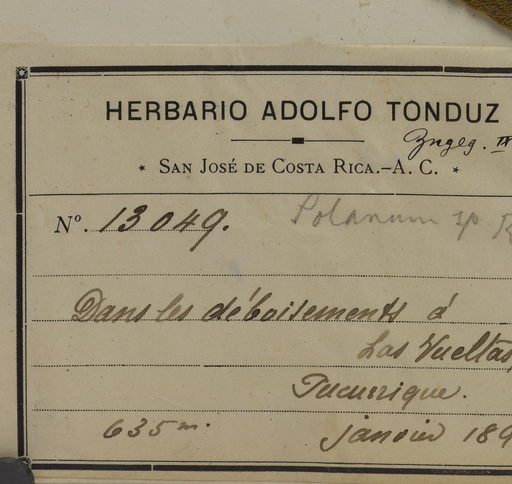 HERBARIO ADOLFO TONDUZ
* SAN JOSÉ DE COSTA RICA.–A. C. *
Nº. 13049. Solanum sp
Dans les déboisements á
Las Vueltas,
Tucurrique.
635 m. janvier 189